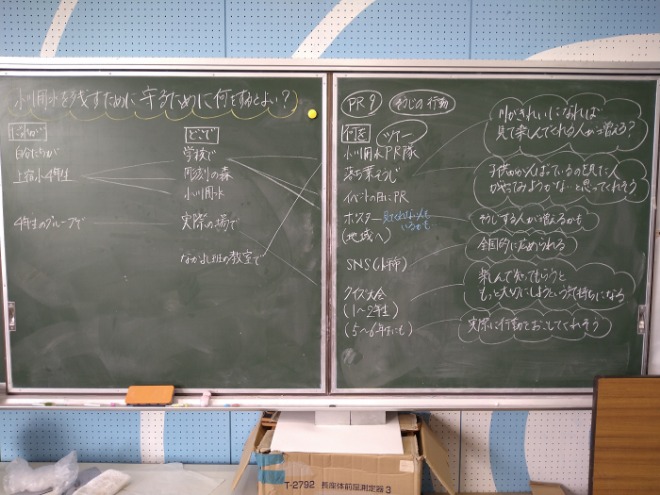 小川用水を残すために守るために何をするとよい?
だれが
自分たちが
上宿小4年生
4年生のグループで
どこで
学校で
彫刻の森
小川用水
実際の場で
なかよし班の教室で
PR 9
そうじの行動
何を
ツアー
小川用水PR隊
落ち葉そうじ
イベントの日にPR
ポスター
見てくれない人もいるかも
(地域へ)
SNS
クイズ大会
(1~2年生)
(5~6年生にも)
川がきれいになれば
見て楽しんでくれる人がふえる?
子供ががんばっているのを見た人
がやってみようかな…と思ってくれそう
そうじする人が増えるかも
全国的に広められる
楽しんで知ってもらうと
もっと大切にしようという気持ちになる
実際に行動でおこしてくれそう
T-2792 長座体前屈測定器3